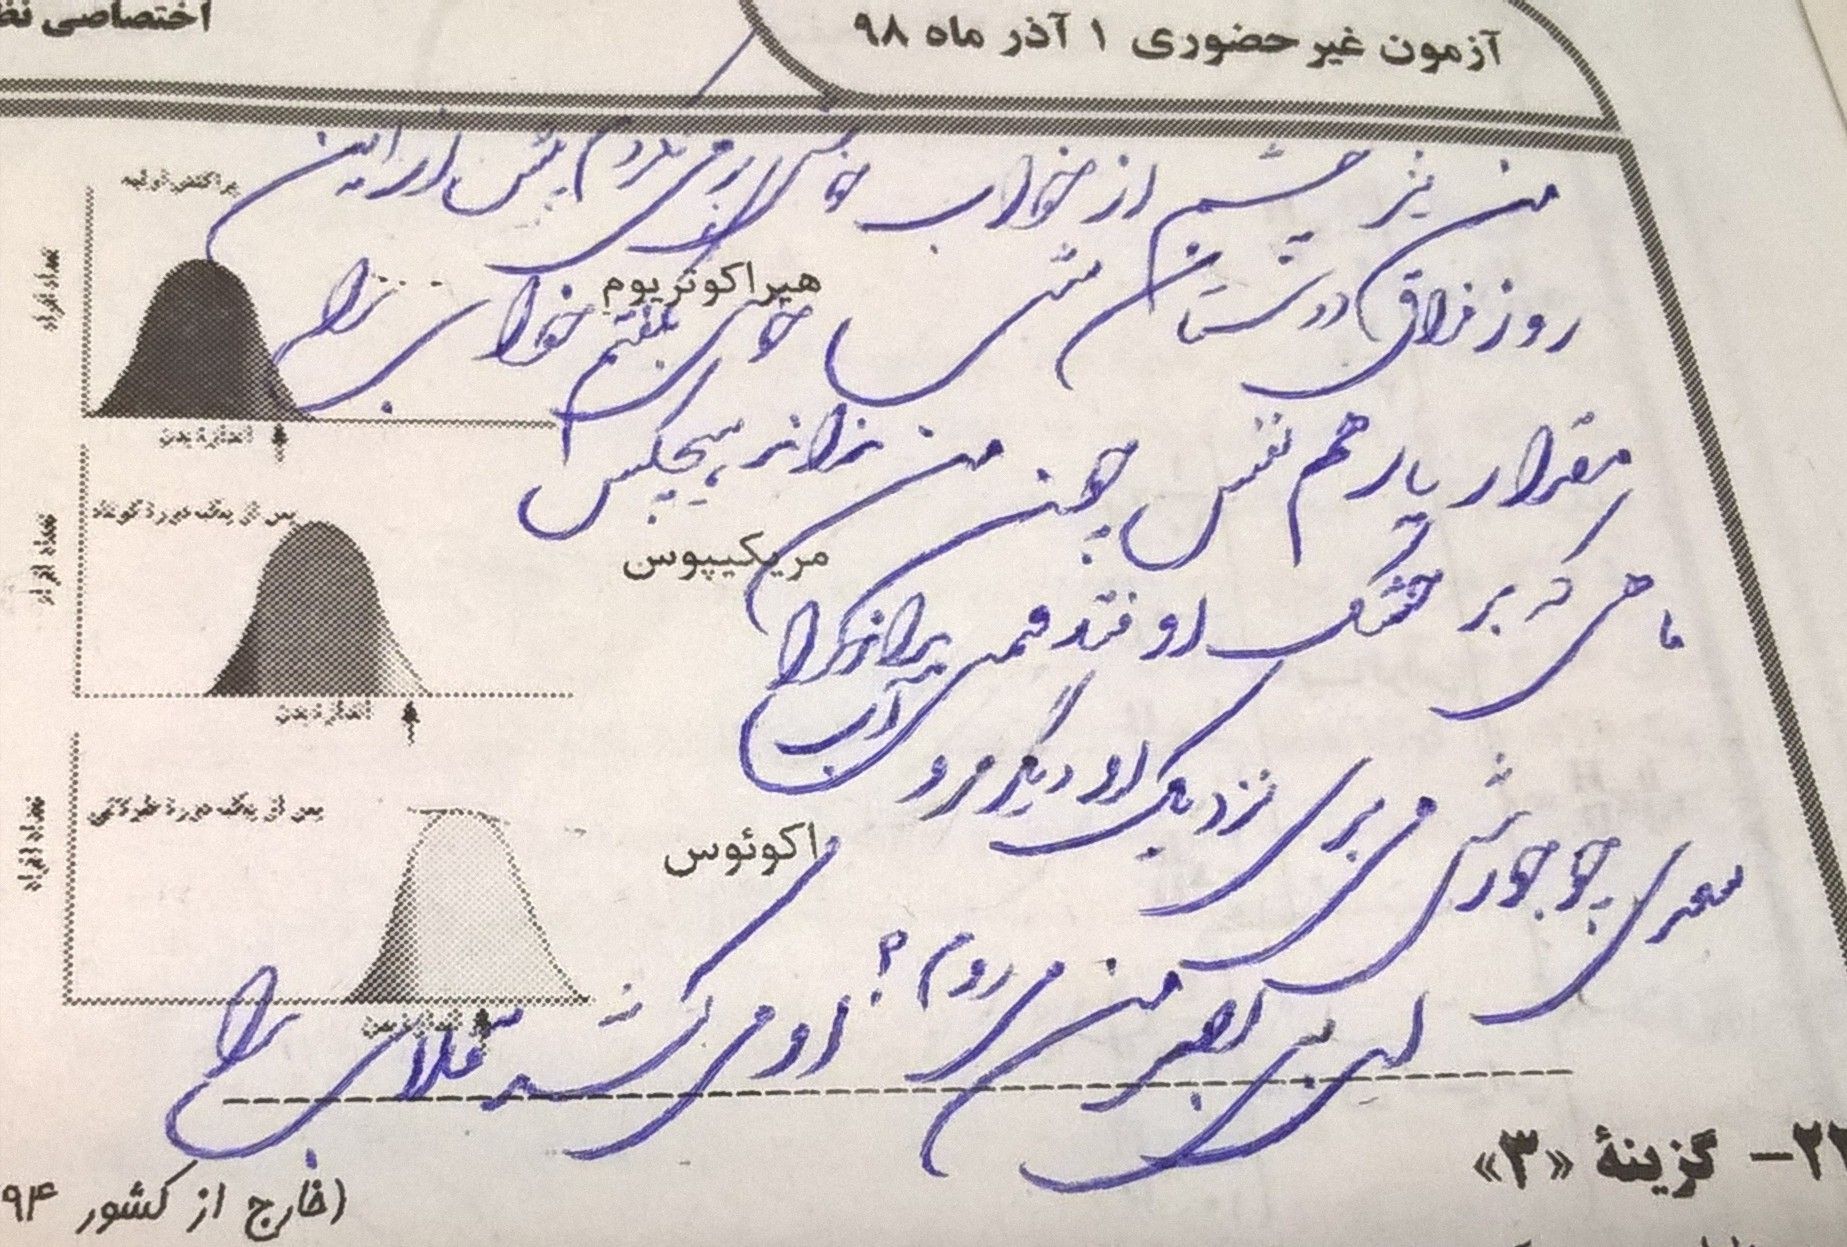 آزمون غیر حضوری ۱ آذر ماه ۹۸
اختصاصی
من نیز چشم از خواب خوش بر می نکردم پیش از این
روز فراق دوستان شب خوش بگفتم خواب را
هیراکوتریوم
تعداد افراد
اندازه بدن
مقدار یار هم نفس چون من نداند هیچکس
پس از یک دوره کوتاه
مریکیپوس
تعداد افراد
ماهی که بر خشک اوفتد قیمت بداند آب را
اندازه بدن
سعدی چو جورش می بری نزدیک او دیگر مرو
پس از یک دوره طولانی
اکوئوس
تعداد افراد
ای بی بصر من می روم؟ او می کشد قلاب را
گزینهٔ «۳»
(خارج از کشور ۹۴